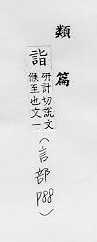 類篇
詣
研計切説文
候至也文一
(言部
P88)